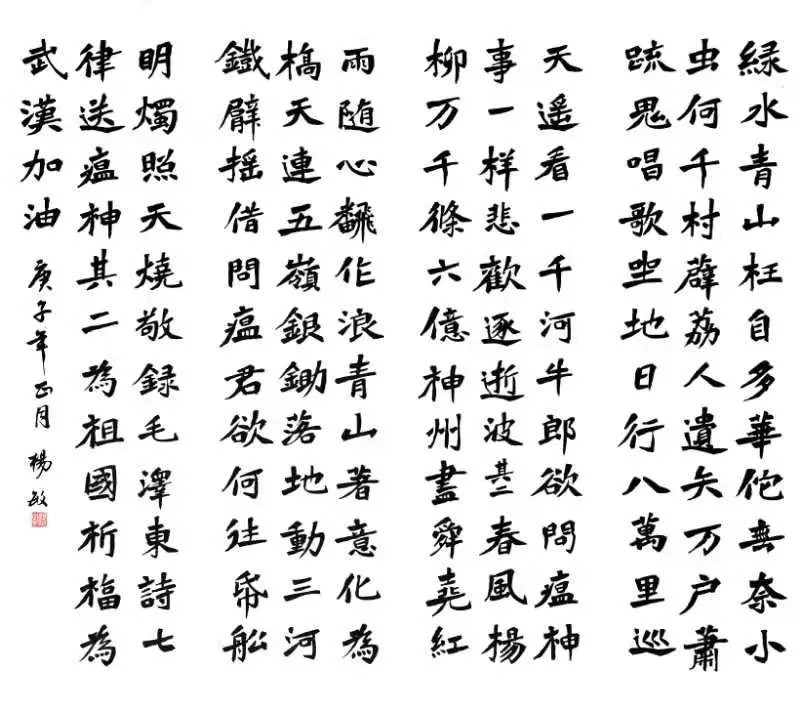 緑水青山枉自多華佗無奈小
虫何千村薜荔人遺矢万户蕭
疏鬼唱歌坐地日行八萬里巡
天遥看一千河牛郎欲問瘟神
事一样悲歡逐逝波其二春風楊
柳万千條六億神州盡舜堯紅
雨随心飜作浪青山著意化為
橋天連五嶺銀鋤落地動三河
鐵臂摇借問瘟君欲何往帋船
明燭照天燒敬録毛澤東詩七
律送瘟神其二為祖國祈福為
武漢加油 庚子年正月 楊敏